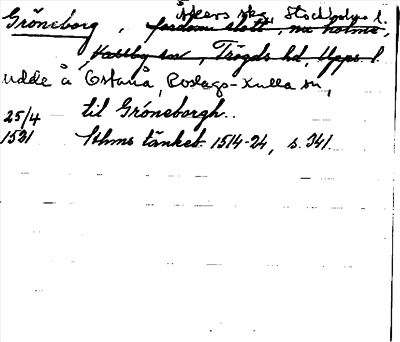 Åkers skg, Stockholms l.
Gröneborg, fordom slott, nu holme,
Kallby sn, Trögds hd, Upps. l.
udde å Östanå, Roslags-Kulla sn,
25/4 til Gröneborgh..
1521 Sthms tänkeb. 1514-24, s. 341.